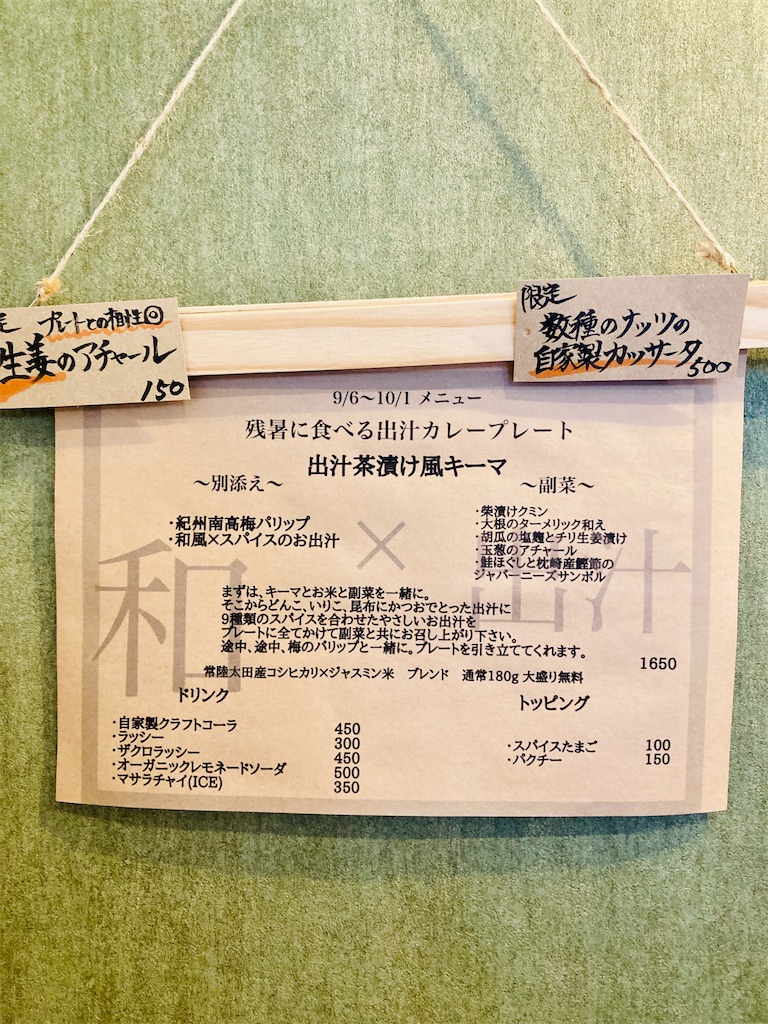 定 プレートとの相性◎
生姜のアチャール
150
限定
数種のナッツの
自家製カッサータ
500
9/6〜10/1 メニュー
残暑に食べる出汁カレープレート
出汁茶漬け風キーマ
〜別添え〜
・紀州南高梅パリップ
・和風×スパイスのお出汁
〜副菜〜
・柴漬けクミン
・大根のターメリック和え
・胡瓜の塩麹とチリ生姜漬け
・玉葱のアチャール
・鮭ほぐしと枕崎産鰹節の
ジャパーニーズサンボル
和×出汁
まずは、キーマとお米と副菜を一緒に。
そこからどんこ、いりこ、昆布にかつおでとった出汁に
9種類のスパイスを合わせたやさしいお出汁を
プレートに全てかけて副菜と共にお召し上がり下さい。
途中、途中、梅のパリップと一緒に。プレートを引き立ててくれます。
1650
常陸太田産コシヒカリ×ジャスミン米 ブレンド 通常180g 大盛り無料
ドリンク
・自家製クラフトコーラ 450
・ラッシー 300
・ザクロラッシー 450
・オーガニックレモネードソーダ 500
・マサラチャイ(ICE) 350
トッピング
・スパイスたまご 100
・パクチー 150